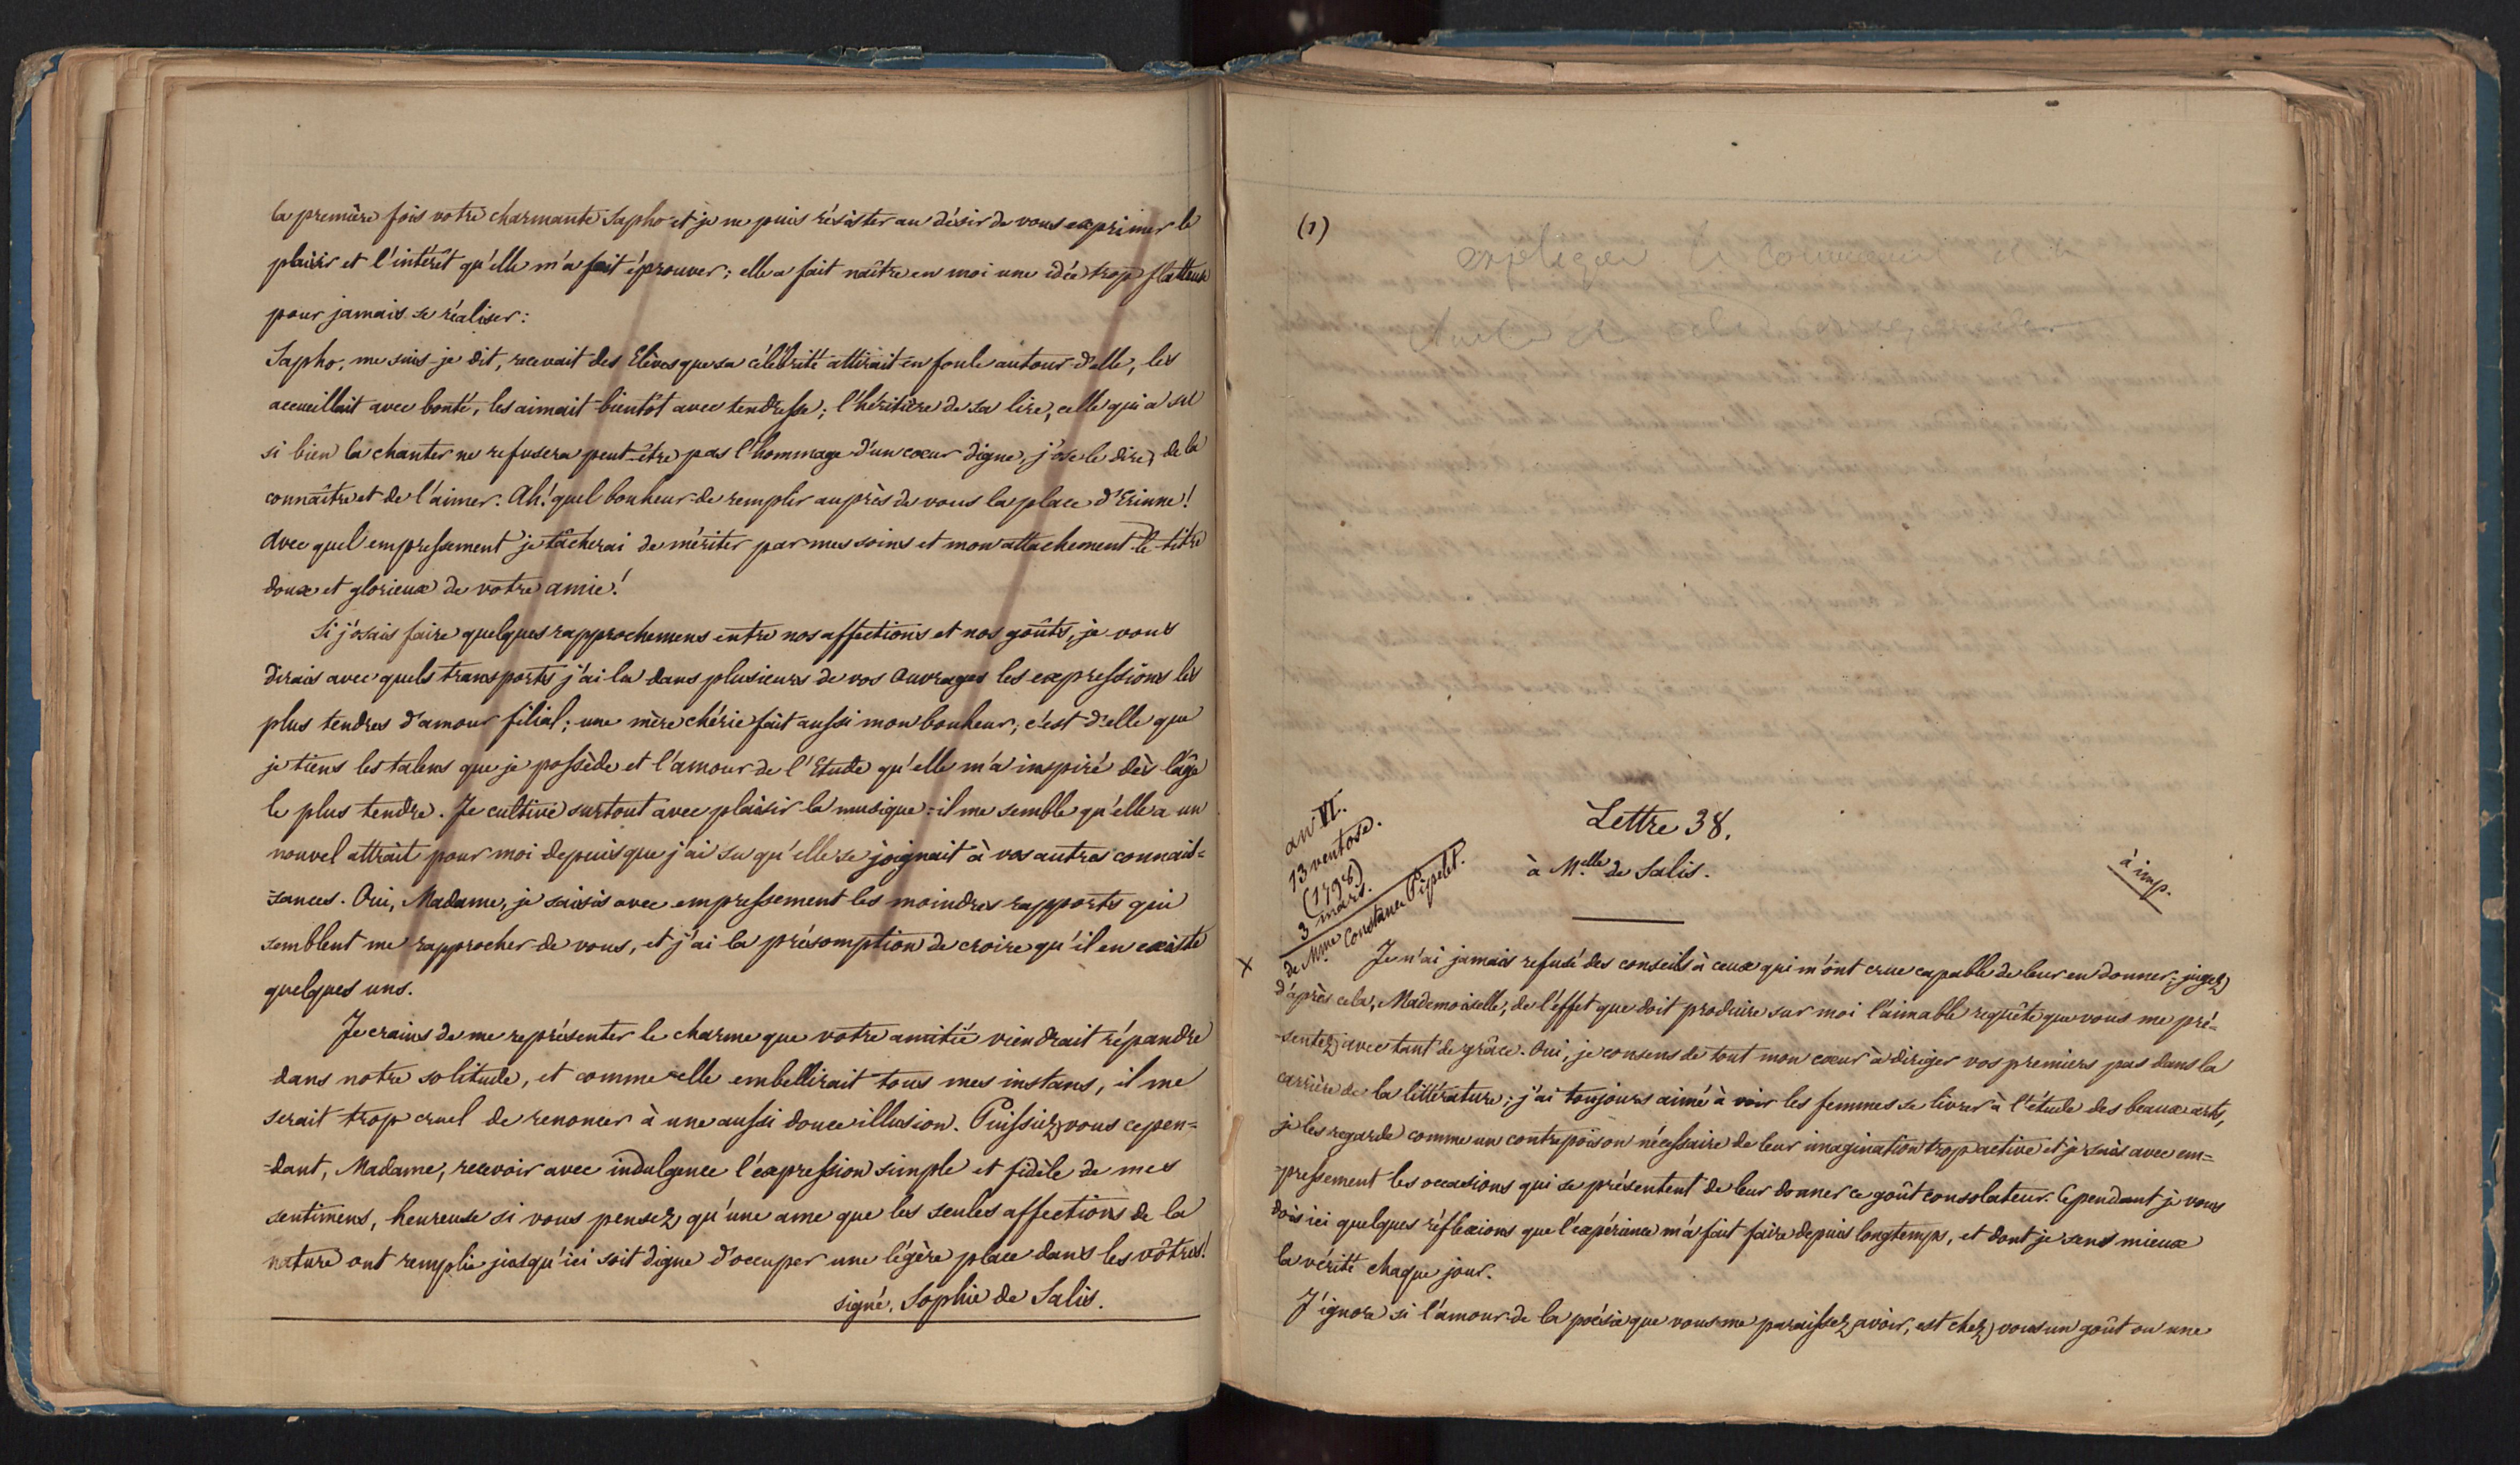 la première fois votre charmante Sapho et je ne puis résister au désir de vous exprimer le
plaisir et l'intérêt qu'elle m'a fait éprouver; elle a fait naître en moi une idée trop flatteuse
pour jamais se réaliser:
Sapho, me suis-je dit, recevait des Elèves que sa célébrité attirait en foule autour d'elle, les
accueillait avec bonté, les aimait bientôt avec tendresse; l'héritière de sa lire, celle qui a su
si bien la chanter ne refusera peut-être pas l'hommage d'un coeur digne, j'ose le dire, de la
connaître et de l'aimer. Ah! quel bonheur de remplir auprès de vous la place d'Erinne!
Avec quel empressement je tâcherai de mériter par mes soins et mon attachement le titre
doux et glorieux de votre amie!
Si j'osais faire quelques rapprochemens entre nos affections et nos goûts, je vous
dirais avec quels transports j'ai lu dans plusieurs de vos Ouvrages les expressions les
plus tendres d'amour filial; une mère chérie fait aussi mon bonheur; c'est d'elle que
je tiens les talens que je possède et l'amour de l'Etude qu'elle m'a inspiré dès l'âge
le plus tendre. Je cultive surtout avec plaisir la musique: il me semble qu'elle a un
nouvel attrait pour moi depuis que j'ai su qu'elle se joignait à vos autres connais=
=sances. Oui, Madame, je saisis avec empressement les moindres rapports qui
semblent me rapprocher de vous, et j'ai la présomption de croire qu'il en existe
quelques uns.
Je crains de me représenter le charme que votre amitié viendrait répandre
dans notre solitude, et comme elle embellirait tous mes instans, il me
serait trop cruel de renoncer à une aussi douce illusion. Puissiez vous cepen=
=dant, Madame, recevoir avec indulgence l'expression simple et fidèle de mes
sentimens, heureuse si vous pensez qu'une ame que les seules affections de la
nature ont remplie jusqu'ici soit digne d'occuper une légère place dans les vôtres!
signé, Sophie de Salis.
(1)
expliquer le
an VI.
13 ventose.
(1798)
3 mars.
de Mme Constance Pipelet.
Lettre 38.
à Melle de Salis.
à imp.
X
Je n'ai jamais refusé des conseils à ceux qui m'ont crue capable de leur en donner; jugez
d'après cela, Mademoiselle, de l'effet que doit produire sur moi l'aimable requête que vous me pré=
=sentez avec tant de grâce. Oui, je consens de tout mon coeur à diriger vos premiers pas dans la
carrière de la littérature; j'ai toujours aimé à voir les femmes se livrer à l'étude des beaux arts,
je les regarde comme un contrepoison nécessaire de leur imagination trop active et je saisis avec em=
=pressement les occasions qui se présentent de leur donner ce goût consolateur. Cependant je vous
dois ici quelques réflexions que l'expérience m'a fait faire depuis longtemps, et dont je sens mieux
la vérité chaque jour.
J'ignore si l'amour de la poésie que vous me paraissez avoir, est chez vous un goût ou une